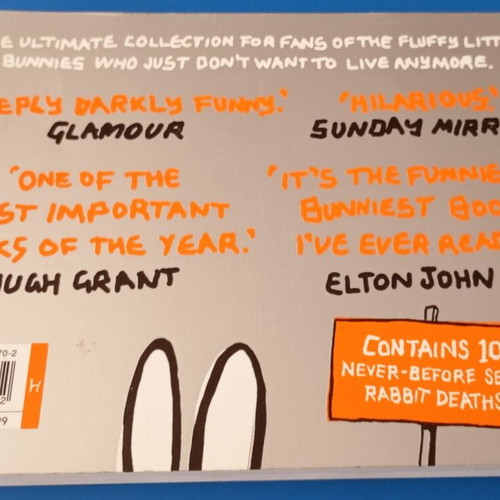 E ULTIMATE COLLECTION FOR FANS OF THE FLUFFY LITT
BUNNIES WHO JUST DON'T WANT TO LIVE ANYMORE.
EPLY DARKLY FUNNY.'
GLAMOUR
'HILARIOUS.'
SUNDAY MIRR
'ONE OF THE
ST IMPORTANT
KS OF THE YEAR.'
HUGH GRANT
'IT'S THE FUNNIE
BUNNIEST BOO
I'VE EVER READ
ELTON JOHN
CONTAINS 10
NEVER-BEFORE SE
RABBIT DEATHS
70-2
H
2
99